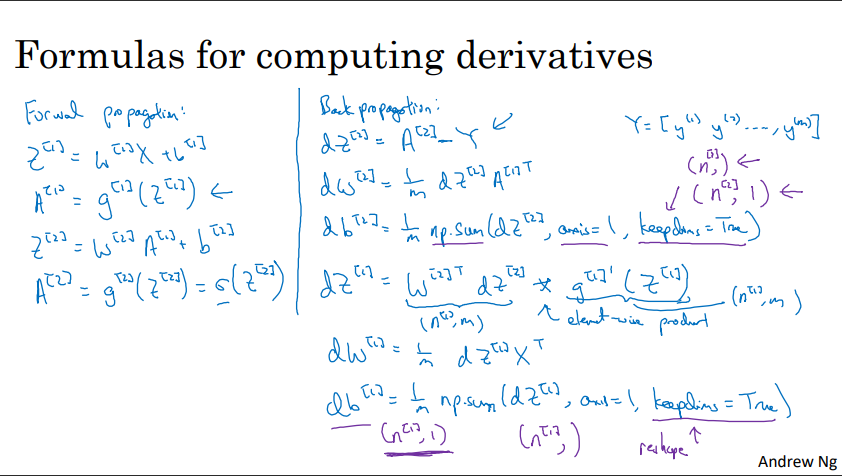 Formulas for computing derivatives
Forward propagation:
Z^[1] = W^[1] X + b^[1]
A^[1] = g^[1](Z^[1]) ←
Z^[2] = W^[2] A^[1] + b^[2]
A^[2] = g^[2](Z^[2]) = σ(Z^[2])
Back propagation:
dZ^[2] = A^[2] - Y
dW^[2] = 1/m dZ^[2] A^[1]T
db^[2] = 1/m np.sum(dZ^[2], axis=1, keepdims=True)
dZ^[1] = W^[2]T dZ^[2] * g^[1]'(Z^[1])
(n^[1], m)
element-wise product
(n^[1], m)
dW^[1] = 1/m dZ^[1] X^T
db^[1] = 1/m np.sum(dZ^[1], axis=1, keepdims=True)
(n^[1], 1)
(n^[1],)
reshape ↑
Y = [y^(1) y^(2) ..., y^(m)]
(n^[2],) ←
(n^[2], 1) ←
Andrew Ng